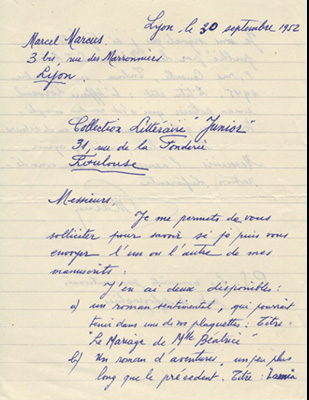 Lyon le 30 septembre 1952
Marcel Marcus.
3 bis, rue des Marronniers
Lyon.
Collection Littéraire "Junior"
31, rue de la Fonderie
Toulouse
Messieurs.
Je me permets de vous
solliciter pour savoir si je puis vous
envoyer l'un ou l'autre de mes
manuscrits.
J'en ai deux disponibles:
a) un roman sentimental, qui pourrait
tenir dans une de vos plaquettes. Titre:
"Le Mariage de Mlle Béatrice"
b) Un roman d'aventures, un peu plus
long que le précédent. Titre: Lamia